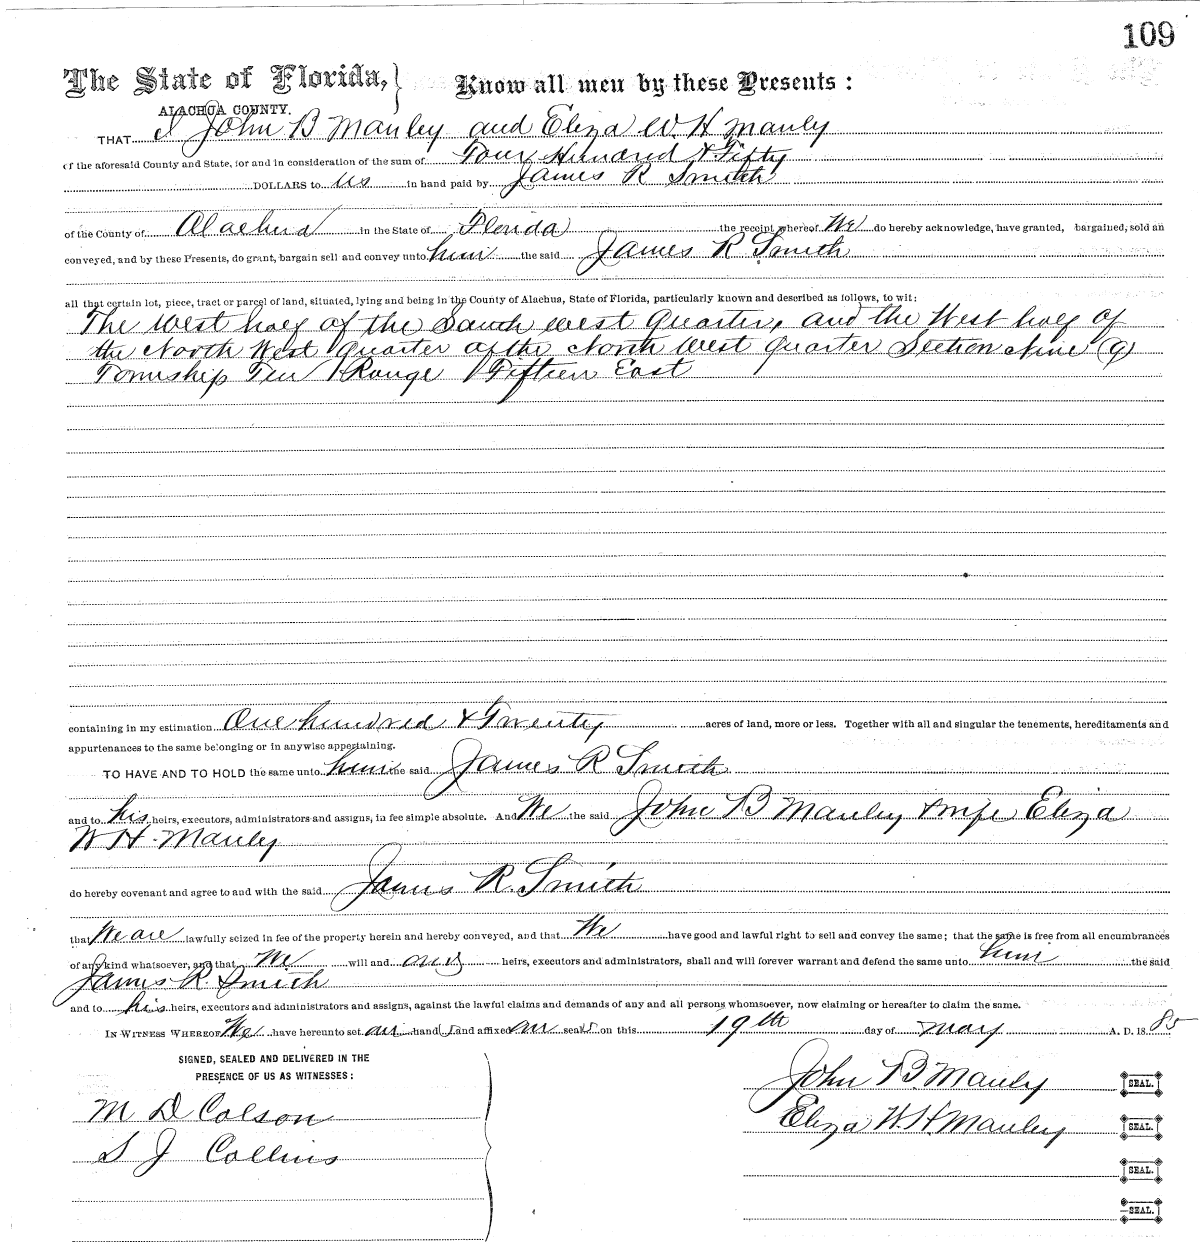 109
The State of Florida, } Know all men by these Presents:
ALACHUA COUNTY.
THAT I John B Manley and Eliza W. H Manly
of the aforesaid County and State, for and in consideration of the sum of Four Hundred & Fifty
DOLLARS to us in hand paid by James R Smith
of the County of Alachua in the State of Florida the receipt whereof We do hereby acknowledge, have granted, bargained, sold an
conveyed, and by these Presents, do grant, bargain sell and convey unto him the said James R Smith
all that certain lot, piece, tract or parcel of land, situated, lying and being in the County of Alachua, State of Florida, particularly known and described as follows, to wit:
The West half of the South West Quarter, and the West half of
the North West Quarter of the North West quarter Section Nine (9)
Township Ten Range Fifteen East
containing in my estimation One hundred & Twenty acres of land, more or less. Together with all and singular the tenements, hereditaments and
appurtenances to the same belonging or in anywise appertaining.
TO HAVE AND TO HOLD the same unto him the said James R Smith
and to his heirs, executors, administrators and assigns, in fee simple absolute. And We the said John B Manley & wife Eliza
W H. Manley
do hereby covenant and agree to and with the said James R. Smith
that We are lawfully seized in fee of the property herein and hereby conveyed, and that We have good and lawful right to sell and convey the same; that the same is free from all encumbrances
of any kind whatsoever, and that We will and our heirs, executors and administrators, shall and will forever warrant and defend the same unto him the said
James R. Smith
and to his heirs, executors and administrators and assigns, against the lawful claims and demands of any and all persons whomsoever, now claiming or hereafter to claim the same.
IN WITNESS WHEREOF We have hereunto set our hand s and affixed our seals on this 19th day of May A. D. 1885
SIGNED, SEALED AND DELIVERED IN THE
PRESENCE OF US AS WITNESSES:
John B. Manley SEAL.
M D Colson
Eliza W. H. Manley SEAL.
S J Collins
SEAL.
SEAL.